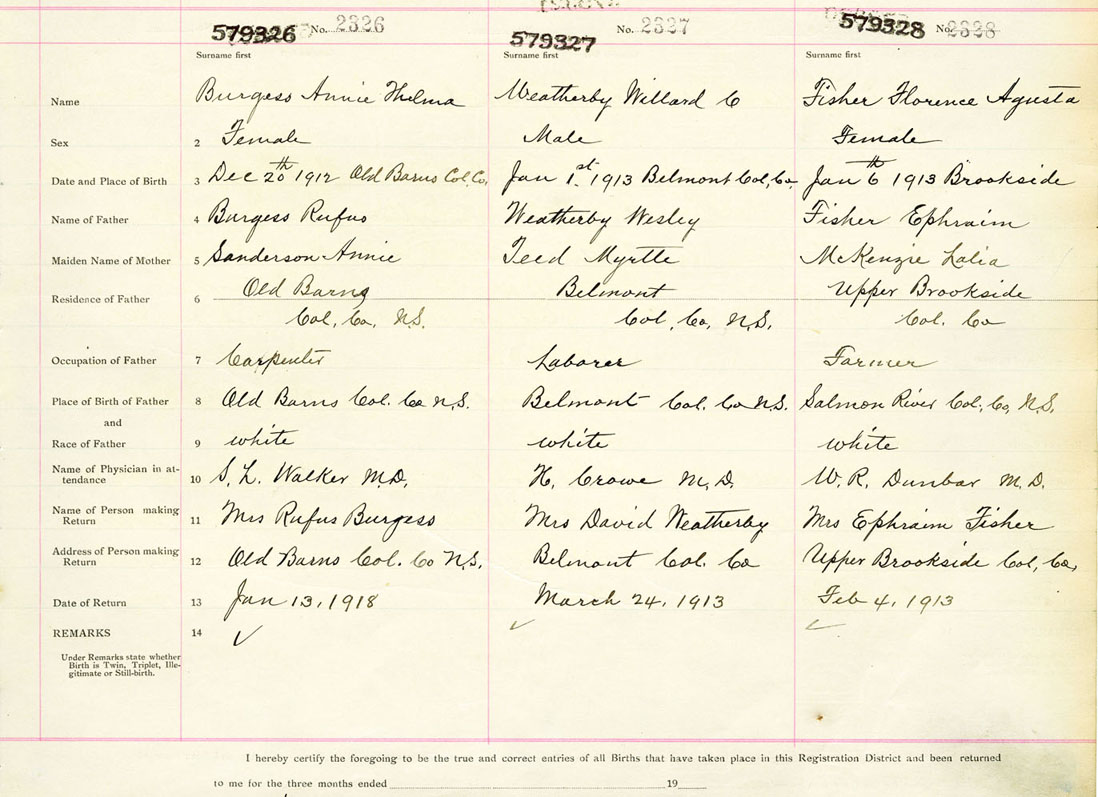 579326 No. 2326 579327 No. 2327 579328 No. 2328
Surname first Surname first Surname first
Name Burgess Annie Thelma Weatherby Willard C Fisher Florence Agusta
Sex 2 Female Male Female
Date and Place of Birth 3 Dec 20th 1912 Old Barns Col. Co, Jan 1st. 1913 Belmont Col, Co, Jan 6th 1913 Brookside
Name of Father 4 Burgess Rufus Weatherby Wesley Fisher Ephraim
Maiden Name of Mother 5 Sanderson Annie Teed Myrtle McKenzie Lalia
Residence of Father 6 Old Barns Belmont Upper Brookside
Col, Co, N.S. Col, Co, N.S. Col. Co
Occupation of Father 7 Carpenter Laborer Farmer
Place of Birth of Father 8 Old Barns Col. Co N.S. Belmont Col. Co N.S. Salmon River Col, Co, N.S.
and
Race of Father 9 white white white
Name of Physician in at-
tendance 10 S. L. Walker M.D. H. Crowe M.D. W. R. Dunbar M.D.
Name of Person making
Return 11 Mrs Rufus Burgess Mrs David Weatherby Mrs Ephraim Fisher
Address of Person making
Return 12 Old Barns Col. Co N.S. Belmont Col. Co Upper Brookside Col, Co,
Date of Return 13 Jan 13, 1918 March 24, 1913 Feb 4, 1913
REMARKS 14
Under Remarks state whether
Birth is Twin, Triplet, Ille-
gitimate or Still-birth.
I hereby certify the foregoing to be the true and correct entries of all Births that have taken place in this Registration District and been returned
to me for the three months ended 19